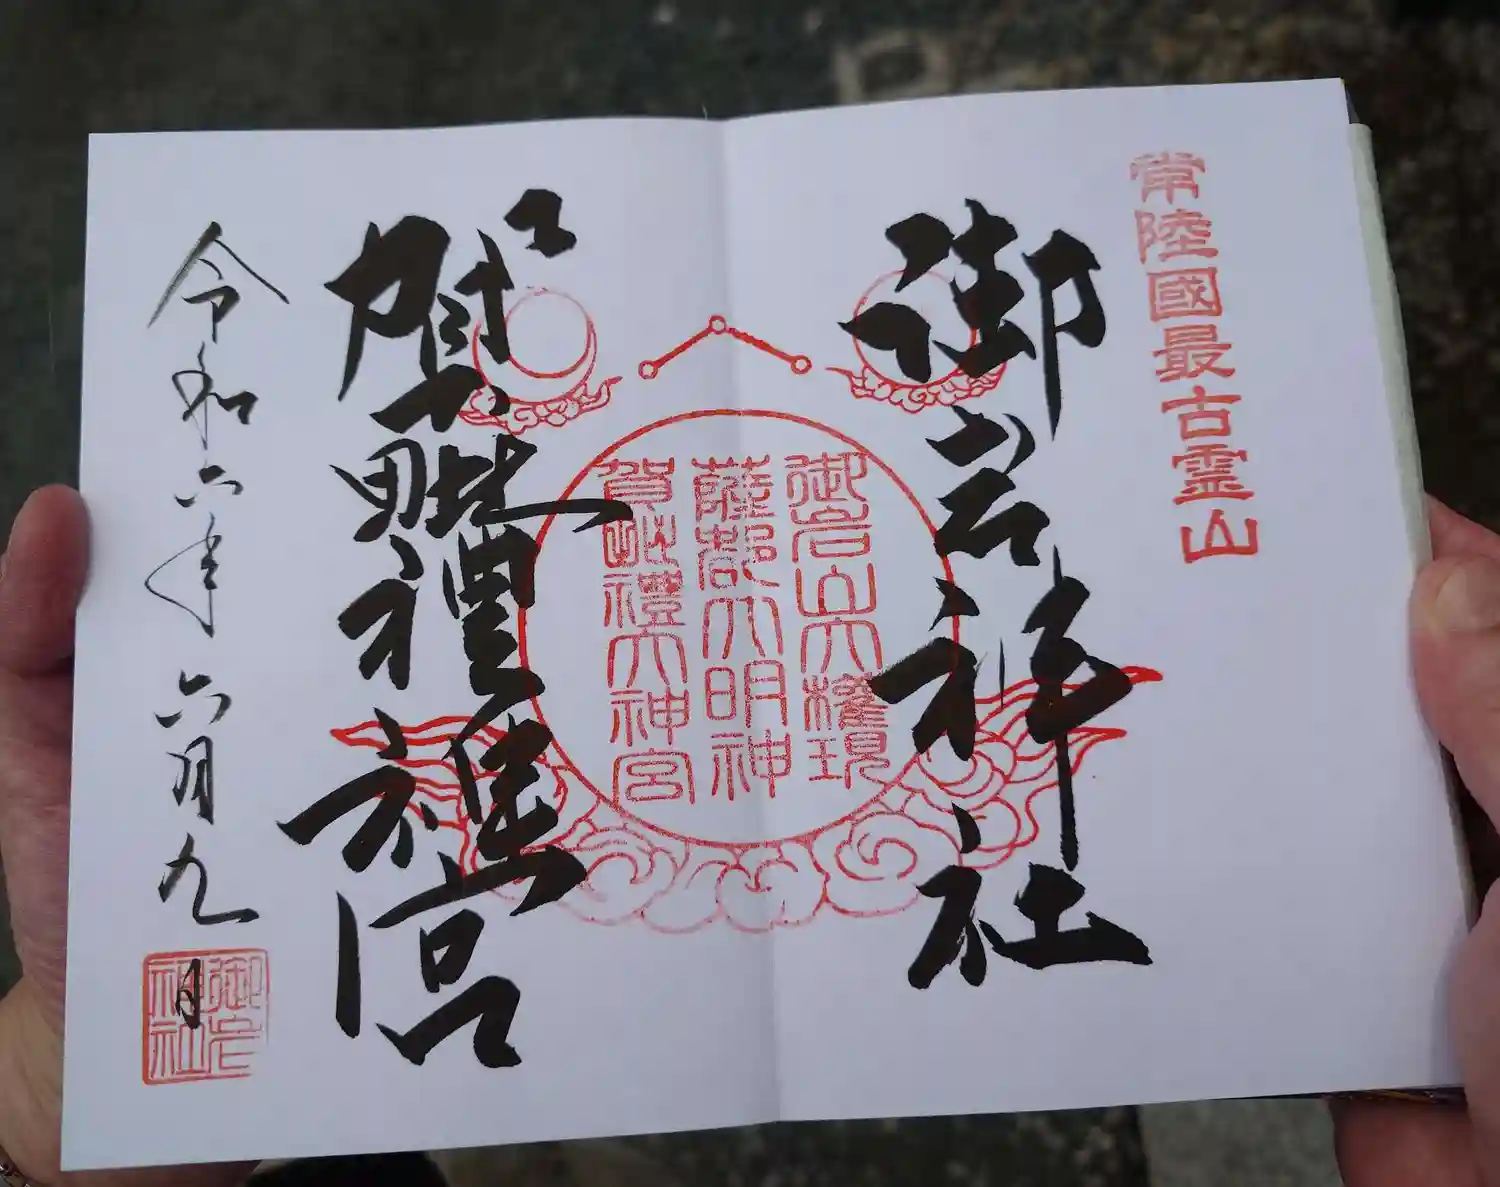 常陸國最古霊山
御岩神社
御岩山大権現
薩都大明神
賀毗禮大神宮
賀毗禮神宮
令和六年六月九日
御岩
神社